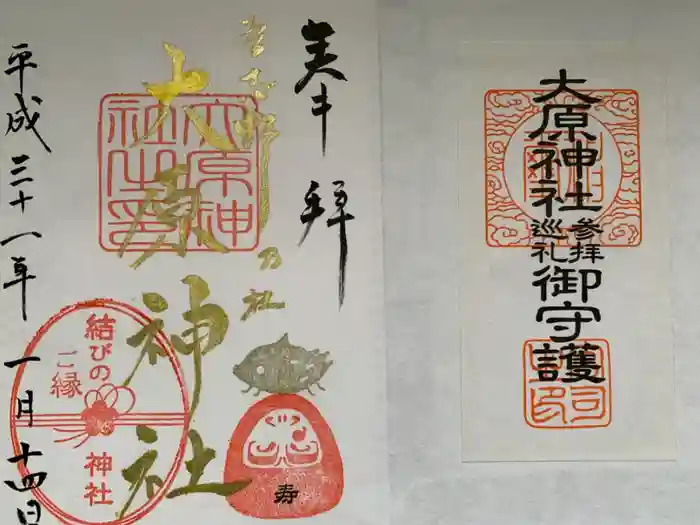 奉拝
乃社
大原神社
大原神社之印
結びの
ご縁
神社
寿
平成三十一年一月十四日
大原神社
参拝
巡礼
御守護